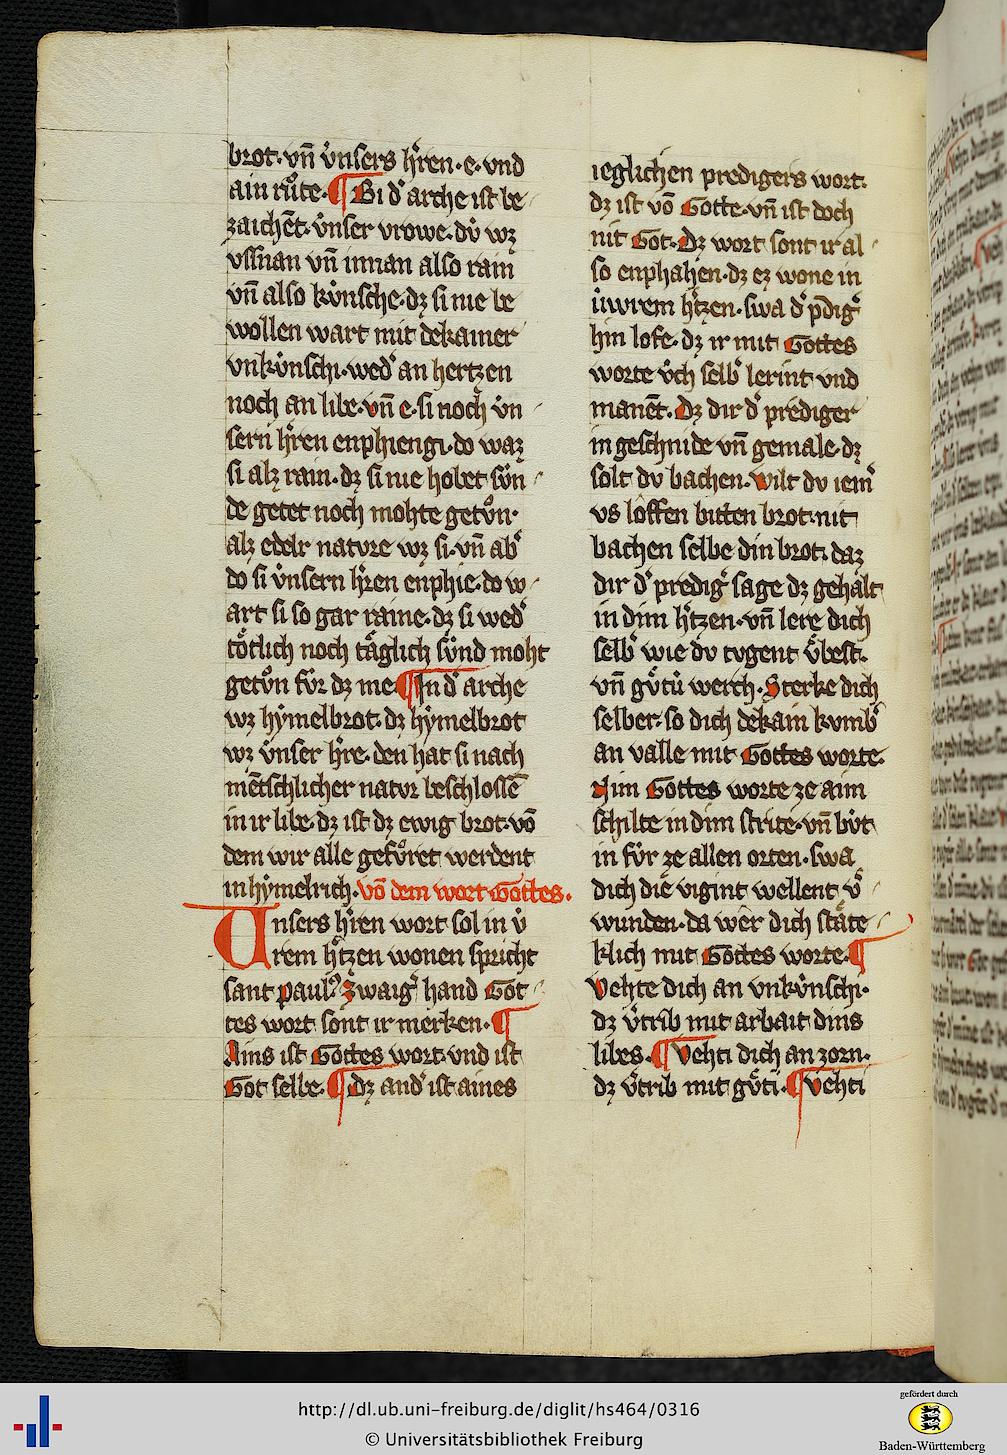 brot· vn̄ v̓nsers h̓ren· e· vnd
ain růte· ¶ Bi d̓ arche ist be
zaichēt· v̓nser vrowe· dv̓ wꝫ
vssnan vn̄ innan also rain
vn̄ also kv̓nsche· dꝫ si nie be
wollen wart mit dekainer
vnkv̓nschi· wed̓ an hertzen
noch an libe· vn̄ e· si noch v̓n
sern h̓ren enphiengi· do waꝫ
si alꝫ rain· dꝫ si nie hobet sv̓n
de getet noch mohte getv̊n·
alꝫ edelr natvre wꝫ si· vn̄ ab̓
do si v̓nsern h̓ren enphie· do w
art si so gar raine· dꝫ si wed̓
tötlich noch täglich sv̓nd moht
getv̊n fv̓r dꝫ me· ¶ In d̓ arche
wꝫ hẏmelbrot· dꝫ hẏmelbrot
wꝫ v̓nser h̓re· den hat si nach
mētschlicher natvr beschlossē
in ir libe· dꝫ ist dꝫ ewig brot· vō
dem wir alle gefv̊ret werdent
in hẏmelrich· vō dem wort Gottes·
Vnsers h̓ren wort sol in v̓
rem h̓tzen wonen spricht
sant paul᷒· zwaig̓ hand Got
tes wort sont ir merken· ¶
Ains ist Gottes wort· vnd ist
Got selbe· ¶ dꝫ and̓ ist aines
ieglichen predigers wort·
dꝫ ist vō Gotte· vn̄ ist doch
nit Got· Dꝫ wort sont ir al
so enphahen· dꝫ eꝫ wone in
v̓wrem h̓tzen· swa d̓ p̄dig̓
hin lofe· dꝫ ir mit Gottes
worte v̓ch selb̓ lerint vnd
manēt· Dꝫ dir d̓ prediger
in geschnide vn̄ gemale· dꝫ
solt dv bachen· wilt dv iem̓
vs löffen bitten brot· nit
bachen selbe din brot· daꝫ
dir d̓ predig̓ sage dꝫ gehalt
in dim h̓tzen· vn̄ lere dich
selb̓ wie dv tvgent v̓best·
vn̄ gv̊tv̓ werch· Sterke dich
selber· so dich dekain kvmb̓
an valle mit Gottes worte·
Nim Gottes worte ze aim
schilte in dim strite· vn̄ bv̓t
in fv̓r ze allen orten· swa
dich die vigint wellent v̓
wunden· da wer dich stäte
klich mit Gottes worte· ¶
Vehte dich an vnkv̓nschi·
dꝫ v̓trib mit arbait dins
libes· ¶ Vehti dich an zorn·
dꝫ v̓trib mit gv̊ti· ¶ Vehti
http://dl.ub.uni-freiburg.de/diglit/hs464/0316
© Universitätsbibliothek Freiburg
gefördert durch
Baden-Württemberg